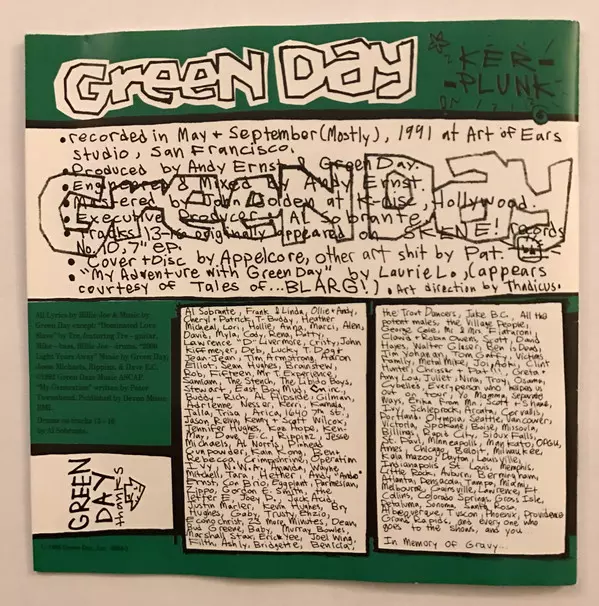 Green Day
KER-
-PLUNK
• recorded in May + September (Mostly), 1991 at Art of Ears
studio, San Francisco.
• Produced by Andy Ernst & Green Day.
• Engineered & Mixed by Andy Ernst.
• Mastered by John Golden at K-disc, Hollywood.
• Executive Producer - Al Sobrante
• Tracks 13-16 originally appeared on SKENE! records
No. 10, 7" ep.
• Cover + Disc by Appelcore, other art shit by Pat.
• "My Adventure with Green Day" by Laurie L. (appears
courtesy of Tales of... BLARG!) • Art direction by Thadicus.
GREEN DAY
All Lyrics by Billie Joe & Music by
Green Day except: "Dominated Love
Slave" by Tre, featuring Tre - guitar,
Mike - bass, Billie Joe - drums; "2000
Light Years Away" Music by Green Day,
Jesse Michaels, Rippins, & Dave E.C.
©1991 Green Daze Music ASCAP
"My Generation" written by Peter
Townshend. Published by Devon Music
BMI.
Drums on tracks 13 - 16
by Al Sobrante.
GREEN
DAY
thanks
Al Sobrante, Frank & Linda, Ollie + Andy,
Cheryl + Patrick, T. Buddy, Heather
Micheal, Lori, Hollie, Anna, Marci, Alen,
David, Myla, Cody, Rena, Patty
Lawrence "D" Livermore, Cristy, John
Kiffmeyer, Deb, Lucky, T. Dog,
Jean, Sean, Tim Armstrong, Aaron
Elliott, Sean Hughes, Brainstrew,
Bob, Filth, Fifteen, T. Experience,
Samiam, The Stench, The Lipid Boys,
Stew out, East Bay
Buddy + Rich, Al Flipside, Gilman,
Adrienne Nesser, Kerri, Kamala,
Jalla, Trina, Arica, 1640 7th St.,
Jason Relva, Kent + Scott Wilcox,
Jennifer Hughes, Kaz, Hope, Ken-
May, Dave E.C., Rippinz, Jesse
Michaels, Al, Norb, Pinhead
Gunpowder, Kain Kong, Bena
Rebecca, Crimpshrine, Operation
Ivy, N.W.A, Amanda, Wayne
Mitchell, Tim, Hether, Andy "Ando"
Ernst, Con Brio, Eggplant, Parmesian,
Zippo, Gordon E. Smith, the
lettered, Joey P., Jack Acid,
Justin Marler, Kevin Hughes, Bry
Hughes, Gabby, Trusty, Enzio,
Econochrist, 23 more Minutes, Dean,
Ms. Greene, Baby, Murray Bowles,
Marshall Stax, Erick Yee, Joel Wing,
Filth, Ashly, Bridgette, Benicia,
the Trout Dancers, Jake B.C., All the
potent males, the Village People,
George Cole, I & Mrs. Fantaroni,
Claudia + Robin Owens, Scott, David
Hayes, Walter Glaser, Ben is Dead,
Jim Yohanan, Tom Gaffy, Victims
Family, Metal Mike, Joji, Aoki, Clint
Hunter, Chrissie + Pat, Greta,
Amy Lou, Juliet, Nina, Troy, Osama,
Cybele, Everyone who helps us
out on tour: Yo Mamma, Separate
Ways, Erika from MN, Scott + Shane,
Iris, Schleprock, Arcata, Corvallis,
Portland, Olympia, Seattle, Vancouver,
Victoria, Spokane, Boise, Missoula,
Billings, Rapid City, Sioux Falls,
St. Paul, Minneapolis, Minnkato, OPGU,
Ames, Chicago, Belloit, Milwaukee,
Kalamazoo, Dayton, Louisville,
Indianapolis, St. Louis, Memphis,
Little Rock, Auburn, Berminghham,
Atlanta, Pensacola, Tampa, Miami,
Melbourne, Gainsville, Lawrence, Ft.
Collins, Colorado Springs, Gross Isle,
Petaluma, Sonoma, Santa Rosa,
Albequerque, Tuscon, Phoenix, Providence
Grand Rapids, and every one who
goes to the shows, and you
In Memory of Gravy...